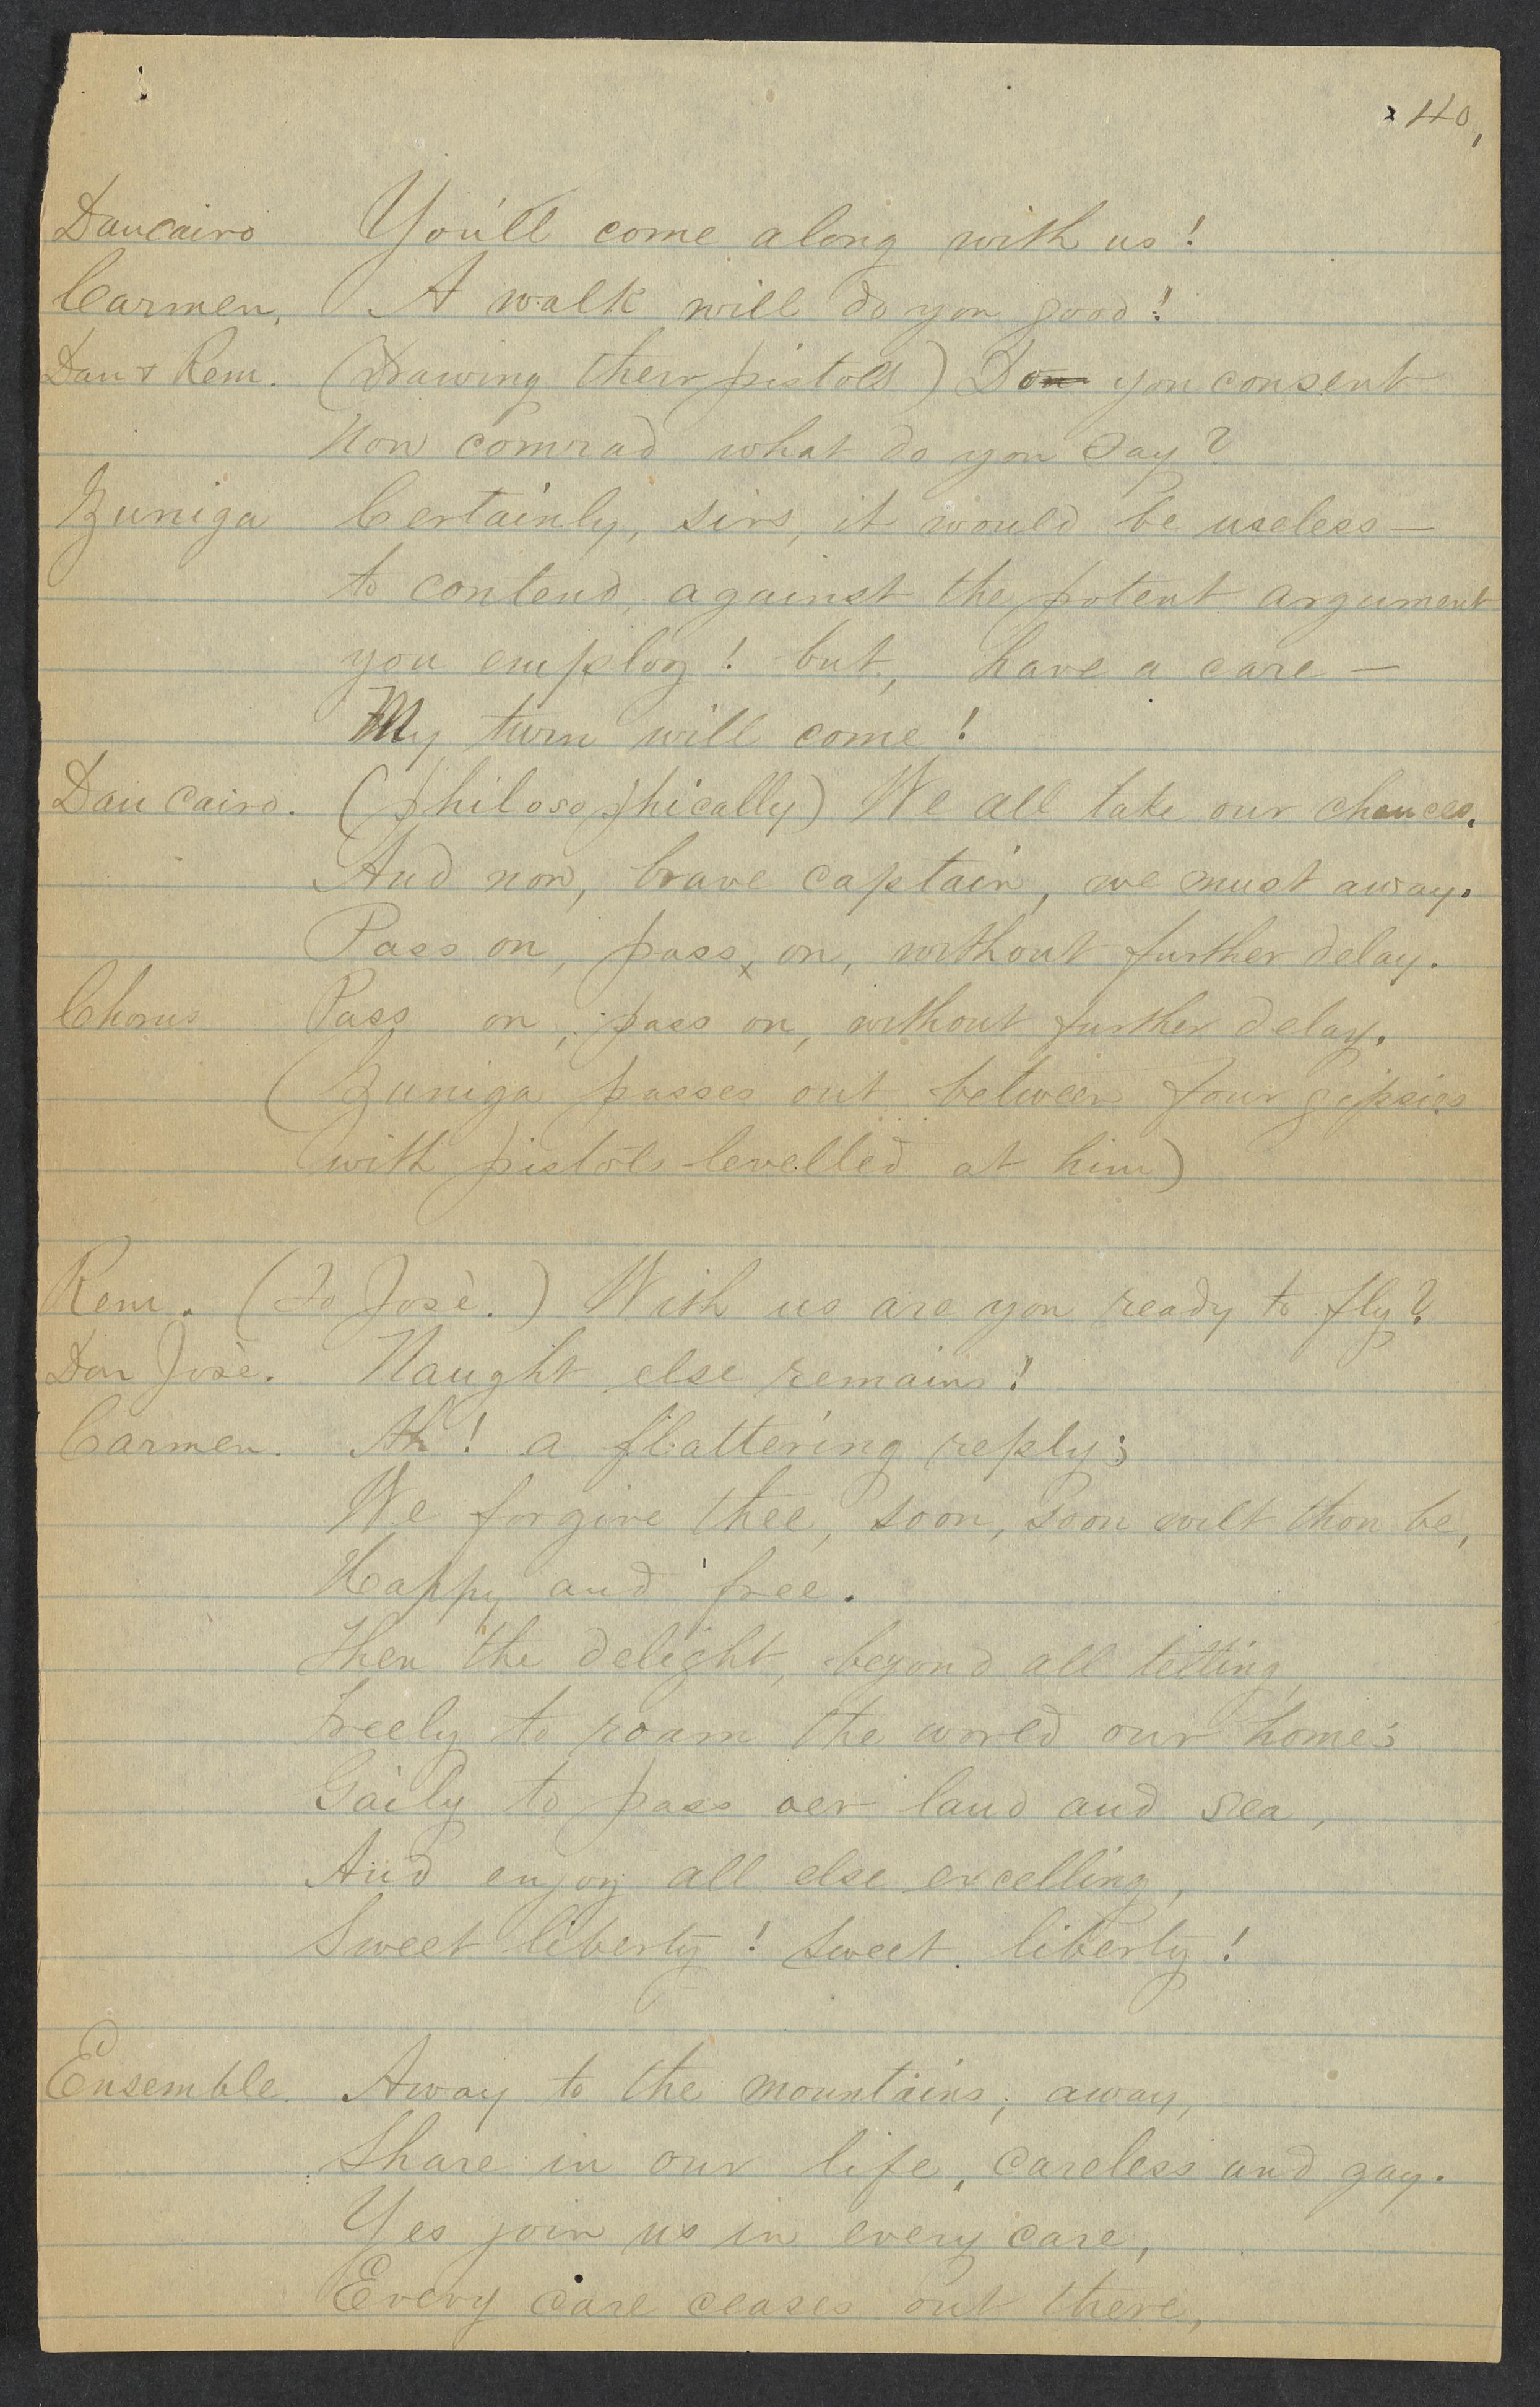 40,
Dancairo You'll come along with us!
Carmen, A walk will do you good!
Dan & Rem. (Drawing their pistols) Do you consent
Now comrad what do you say?
Zuniga Certainly, sirs, it would be useless —
to contend, against the potent argument
you employ! but, have a care —
My turn will come!
Dancairo. (philosophically) We all take our chances.
And now, brave captain, we must away.
Pass on, pass, on, without further delay.
Chorus Pass on, pass on, without further delay.
(Zuniga passes out between four gipsies
with pistols levelled at him)
Rem. (To Josè.) With us are you ready to fly?
Don Josè. Naught else remains!
Carmen. Ah! a flattering reply;
We forgive thee, soon, soon wilt thou be,
Happy and free.
Then the delight, beyond all telling,
Freely to roam the world our home;
Gaily to pass oer land and sea,
And enjoy all else excelling,
Sweet liberty! Sweet liberty!
Ensemble. Away to the mountains, away,
Share in our life, careless and gay.
Yes join us in every care,
Every care ceases out there,